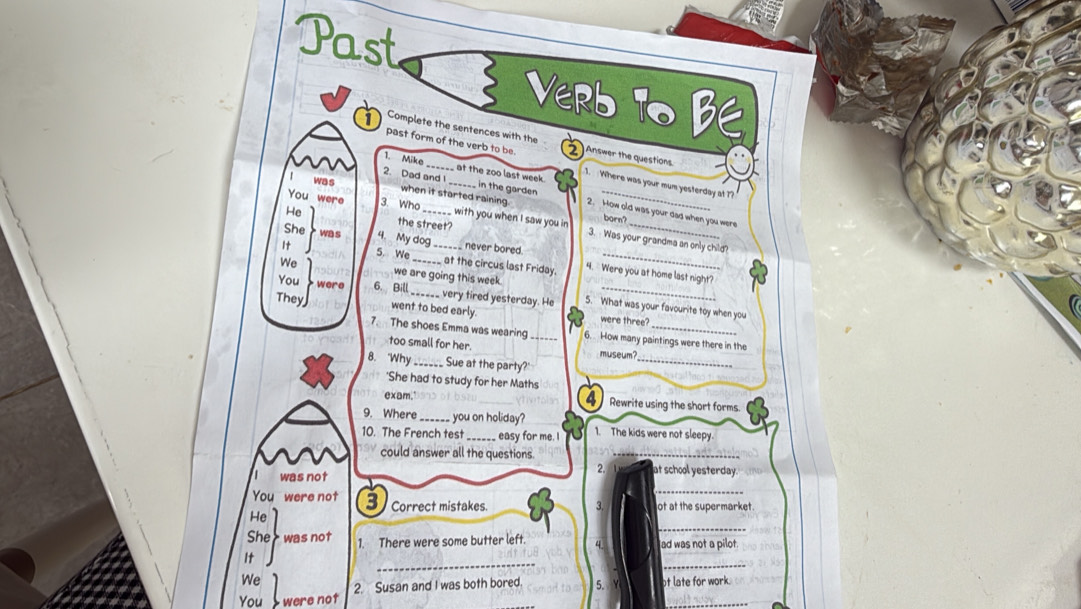 Past
VERb To BE
1 Complete the sentences with the
past form of the verb to be.
1. Mike ______ at the zoo last week.
2. Dad and I ______ in the garden
when it started raining.
3. Who ______ with you when I saw you in
the street?
4. My dog ______ never bored.
5. We ______ at the circus last Friday,
we are going this week.
6. Bill ______ very tired yesterday. He
went to bed early.
7. The shoes Emma was wearing ______
too small for her.
8. 'Why ______ Sue at the party?'
'She had to study for her Maths
exam.'
9. Where ______ you on holiday?
10. The French test ______ easy for me. I
could answer all the questions.
I was
You were
He
She was
It
We
You were
They
I was not
You were not
He
She was not
It
We
You were not
2 Answer the questions.
1. Where was your mum yesterday at 7?
2. How old was your dad when you were
born?
3. Was your grandma an only child?
4. Were you at home last night?
5. What was your favourite toy when you
were three?
6. How many paintings were there in the
museum?
3 Correct mistakes.
1. There were some butter left.
2. Susan and I was both bored.
4 Rewrite using the short forms.
1. The kids were not sleepy.
2. at school yesterday.
3. at the supermarket.
4. was not a pilot.
5. late for work.